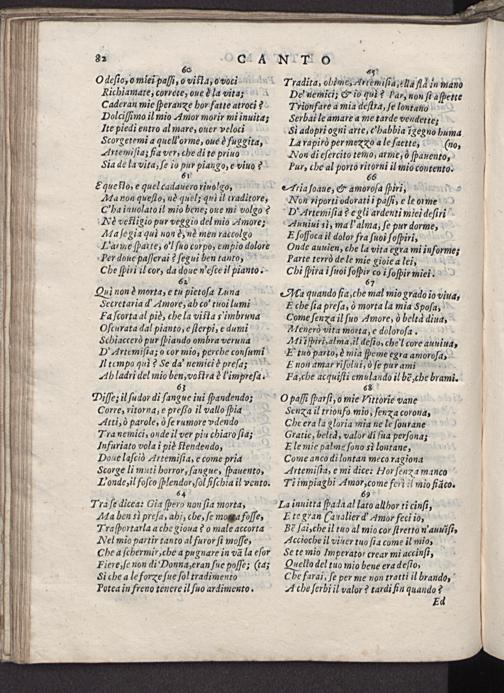 82 CANTO
60
O desio, o miei passi, o vista, o voci
Richiamate, correte, oue è la vita;
Caderan mie speranze hor fatte atroci?
Dolcissimo il mio Amor morir mi inuita;
Ite piedi entro al mare, ouer veloci
Scorgetemi a quell'orme, oue è fuggita,
Artemisia; fia ver, che di te priuo
Sia de la vita, se io pur piango, e viuo?
61
E questo, e quel cadauero riuolgo,
Ma non questo, nè quel; qui il traditore,
C'ha inuolato il mio bene; oue mi volgo?
Nè vestigio pur veggio del mio Amore;
Ma segia qui non è, nè men raccolgo
L'arme sparte, o'l suo corpo, empio dolore
Per doue passerai? segui ben tanto,
Che spiri il cor, da doue n'esce il pianto.
62
Qui non è morta, e tu pietosa Luna
Secretaria d'Amore, ab co' tuoi lumi
Fa scorta al piè, che la vista s'imbruna
Oscurata dal pianto, e sterpi, e dumi
Schiaccerò pur spiando ombra veruna
D'Artemisia; o cor mio, perche consumi
Il tempo qui? Se da' nemici è presa;
Ah ladri del mio ben, vostra è l'impresa.
63
Disse; il sudor di sangue iui spandendo;
Corre, ritorna, e presso il vallo spia
Atti, ò parole, ò se rumore vdendo
Tra nemici, onde il ver piu chiaro sia;
Infuriato vola i piè stendendo,
Doue lasciò Artemisia, e come pria
Scorge li muti horror, sangue, spauento,
L'onde, il fosco splendor, sol fischia il vento.
64
Tra se dicea: Gia spero non sia morta,
Ma ben sì presa, ahi, che, se morta fosse,
Trasportarla a che gioua? o male accorta
Nel mio partir tanto al furor si mosse,
Che a schermir, che a pugnare in vã la esor
Fiere, se non di Donna, eran sue posse; (ta;
Sì che a le forze sue sol tradimento
Potea in freno tenere il suo ardimento.
65
Tradita, ohime, Artemisia, ella stà in mano
De' nemici; & io quì? Par, non si aspette
Trionfare a mia destra, se lontano
Serbai le amare a me tarde vendette;
Si adopri ogni arte, c'habbia ĩgegno huma
La rapirò per mezzo a le saette, (no,
Non di esercito temo, arme, ò spauento,
Pur, che al porto ritorni il mio contento.
66
Aria soaue, & amorosa spiri,
Non riporti odorati i passi, e le orme
D'Artemisia? e gli ardenti miei desiri
Auuiui sì, ma l'alma, se pur dorme,
E soffoca il dolor fra suoi sospiri,
Onde auuien, che la vita egra mi informe;
Parte terrò de le mie gioie a lei,
Chi spira i suoi sospir co i sospir miei.
67
Ma quando fia, che mal mio grado io viua,
E che sia presa, ò morta la mia Sposa,
Come senza il suo Amore, ò beltà diua,
Menerò vita morta, e dolorosa.
Mi ispiri, alma, il desio, che'l core auuiua,
E tuo parto, è mia speme egra amorosa,
E non amar risolui, ò se pur ami
Fa, che acquisti emulando il bẽ, che brami.
68
O passi sparsi, o mie Vittorie vane
Senza il trionfo mio, senza corona,
Che era la gloria mia ne le sourane
Gratie, beltà, valor di sua persona;
E le mie palme sono sì lontane,
Come anco di lontan meco ragiona
Artemisia, e mi dice: Hor senza manco
Ti impiaghi Amor, come ferì il mio fiãco.
69
La inuitta spada al lato allhor ti cinsi,
E te gran Caualier d'Amor feci io,
Bẽ sai, che il tuo al mio cor stretto n'auuisi,
Accioche il viuer tuo sia come il mio,
Se te mio Imperator crear mi accinsi,
Quello del tuo mio bene era desio,
Che farai, se per me non tratti il brando,
A che serbi il valor? tardi fin quando?
Ed